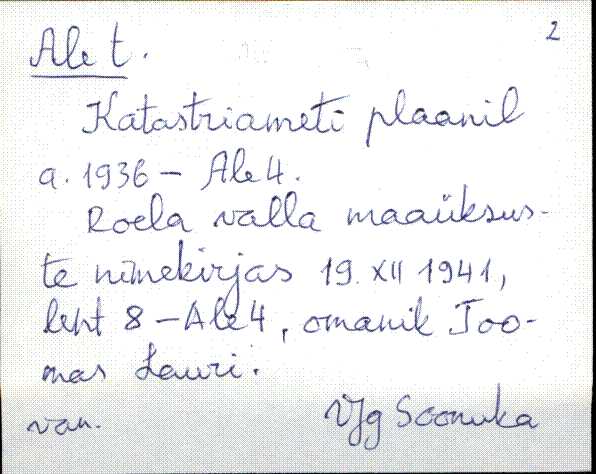 2
Ale t.
Katastriameti plaanil
a. 1936 – Ale 4.
Roela valla maaüksus-
te nimekirjas 19. XII 1941,
leht 8 – Ale 4, omanik Too-
mas Lauri.
van. VJg Soonuka